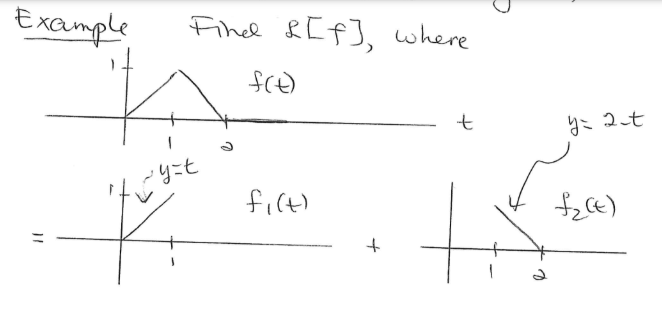 Example Find ℒ[f], where
1
f(t)
t
1 2
y=2-t
y=t
1 f₁(t) f₂(t)
= +
1 1 2